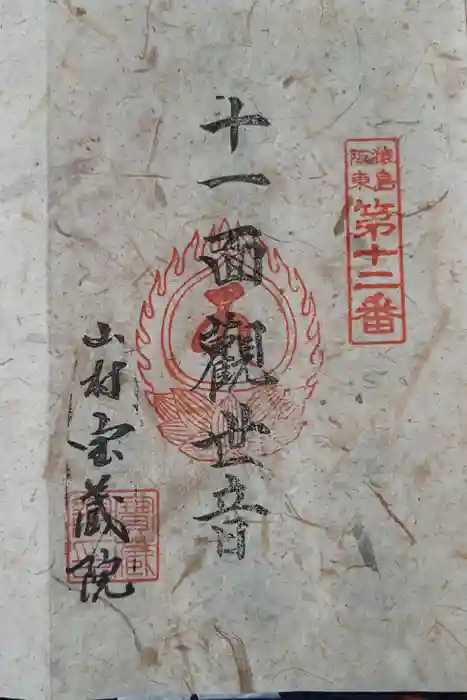 猿島
阪東
第十二番
十一面觀世音
山村宝蔵院